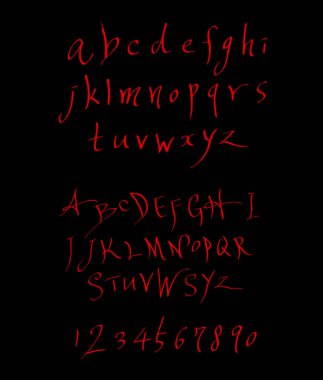 abcdefghi
jklmnopqrs
tuvwxyz
ABCDEFGHI
JJKLMNOPQR
STUVWSYZ
1234567890